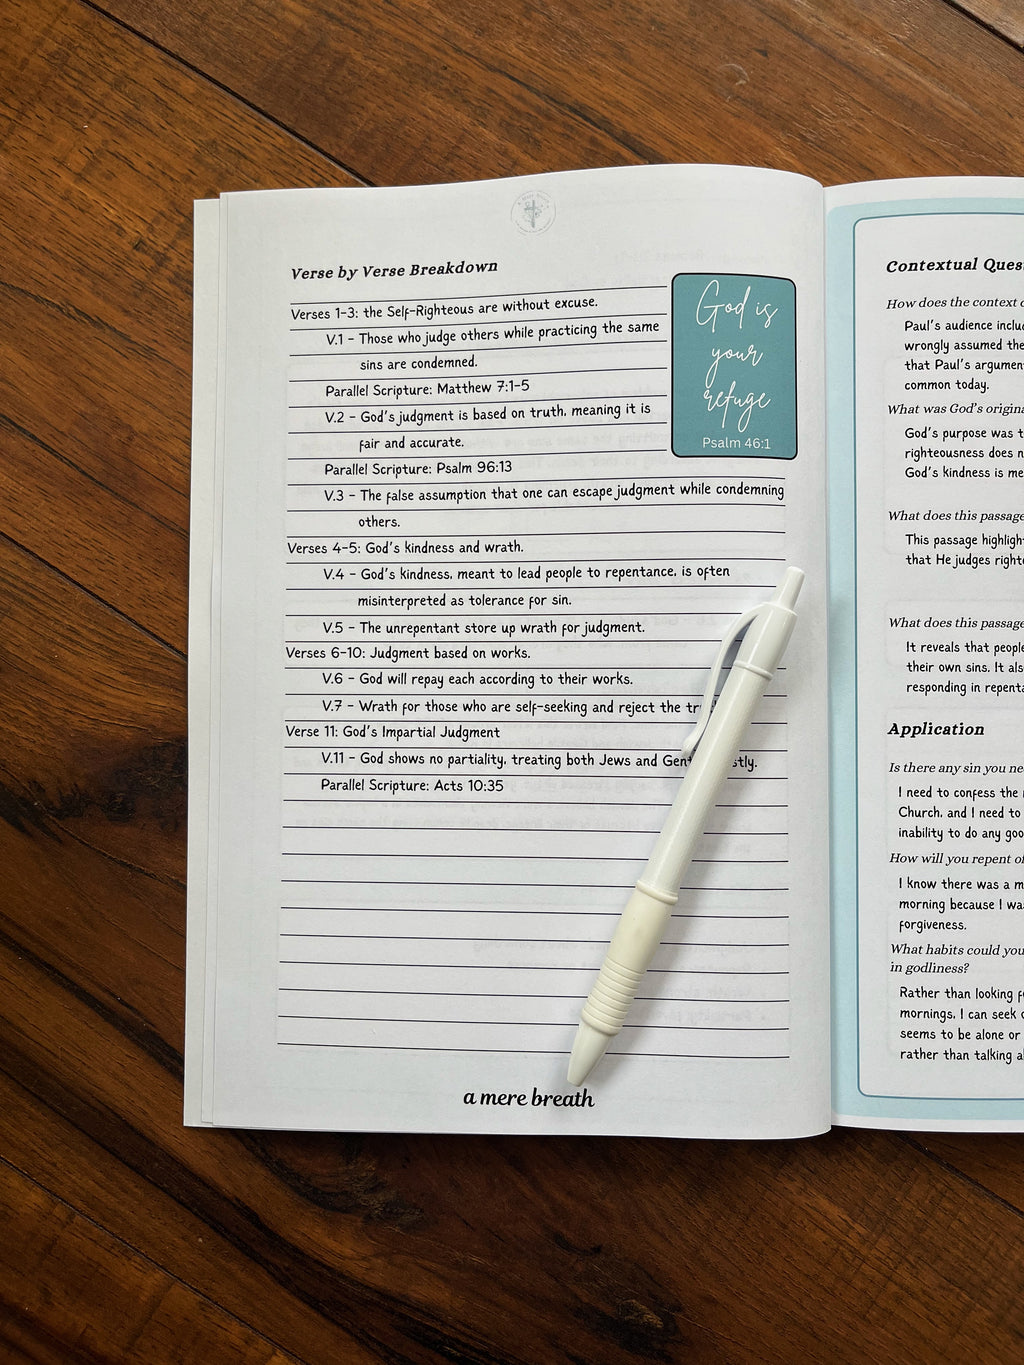 Verse by Verse Breakdown
Verses 1-3: the Self-Righteous are without excuse.
V.1 - Those who judge others while practicing the same
sins are condemned.
Parallel Scripture: Matthew 7:1-5
V.2 - God's judgment is based on truth, meaning it is
fair and accurate.
Parallel Scripture: Psalm 96:13
V.3 - The false assumption that one can escape judgment while condemning
others.
Verses 4-5: God's kindness and wrath.
V.4 - God's kindness, meant to lead people to repentance, is often
misinterpreted as tolerance for sin.
V.5 - The unrepentant store up wrath for judgment.
Verses 6-10: Judgment based on works.
V.6 - God will repay each according to their works.
V.7 - Wrath for those who are self-seeking and reject the
Verse 11: God's Impartial Judgment
V.11 - God shows no partiality, treating both Jews and
Parallel Scripture: Acts 10:35
God is
your
refuge
Psalm 46:1
a mere breath
Contextual
How does the context
Paul's audience
wrongly assumed the
that Paul's
common today.
What was God's
God's purpose was
righteousness does
God's kindness is
What does this passage
This passage
that He judges
What does this passage
It reveals that
their own sins. It
responding in
Application
Is there any sin you
I need to confess the
Church, and I need to
inability to do any
How will you repent
I know there was a
morning because I
forgiveness.
What habits could you
in godliness?
Rather than looking
mornings, I can seek
seems to be alone or
rather than talking